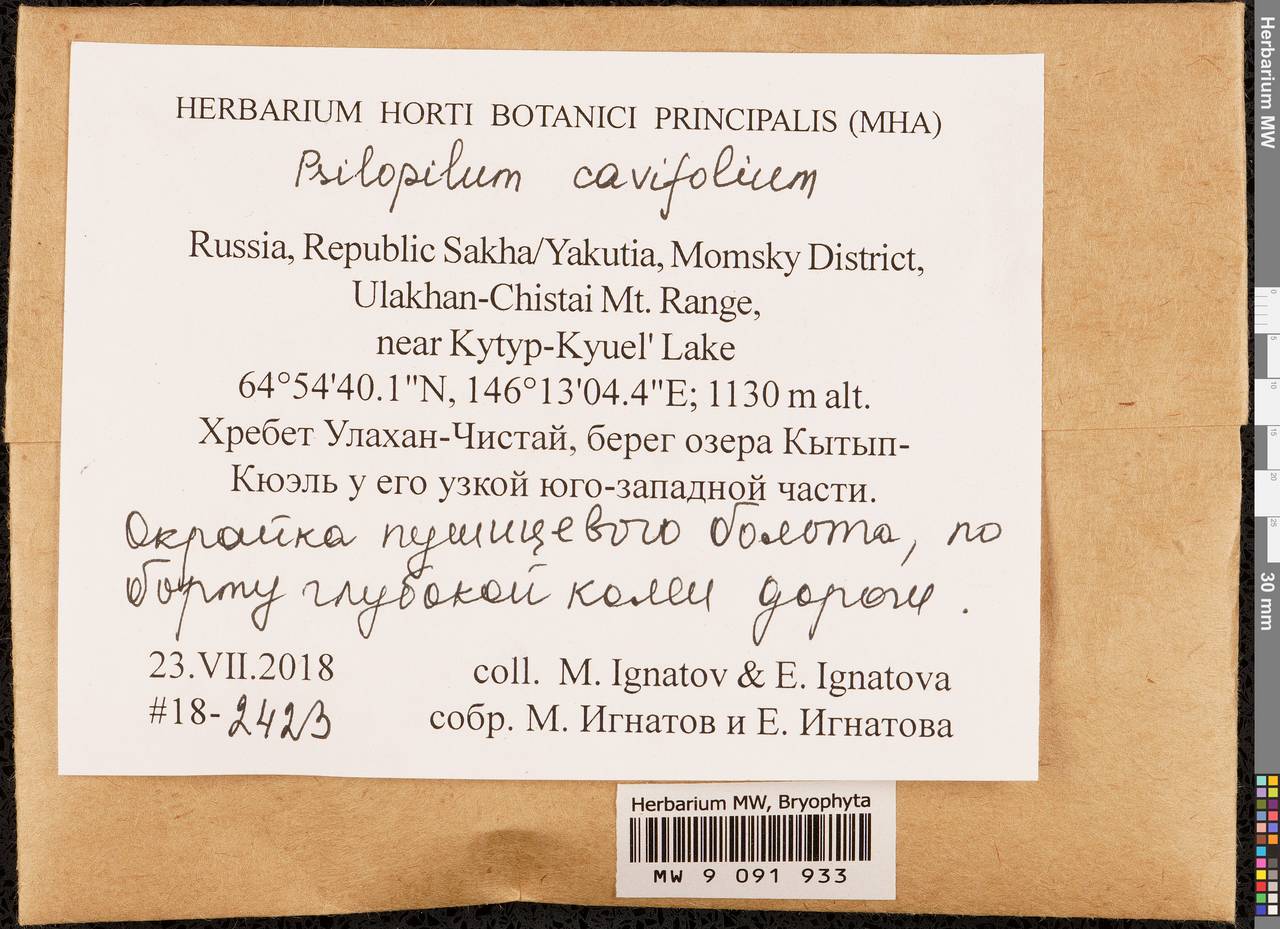 HERBARIUM HORTI BOTANICI PRINCIPALIS (MHA)
Psilopilum cavifolium
Russia, Republic Sakha/Yakutia, Momsky District,
Ulakhan-Chistai Mt. Range,
near Kytyp-Kyuel' Lake
64°54'40.1"N, 146°13'04.4"E; 1130 m alt.
Хребет Улахан-Чистай, берег озера Кытып-
Кюэль у его узкой юго-западной части.
Окрайка пушицевого болота, по
борту глубокой колеи дороги.
23.VII.2018 coll. M. Ignatov & E. Ignatova
#18-2423 собр. М. Игнатов и Е. Игнатова
Herbarium MW, Bryophyta
MW 9 091 933
Herbarium MW
0
5
10
15
20
25
30 mm